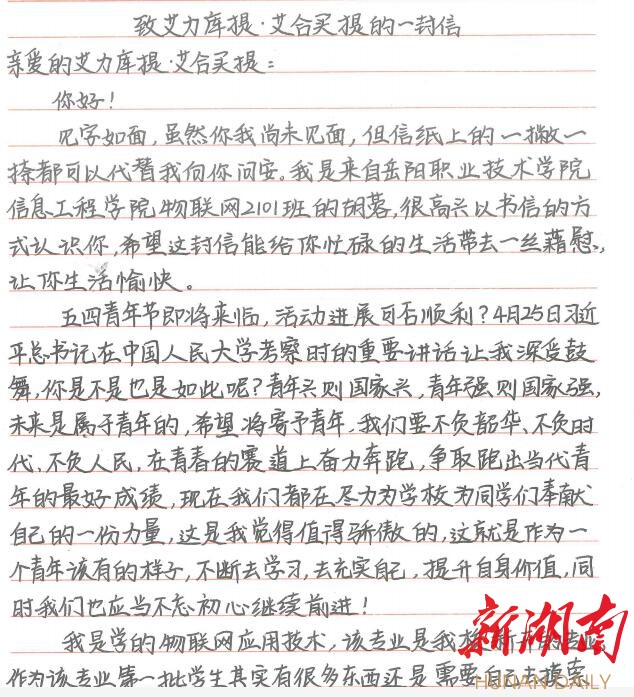 致艾力库提·艾合买提的一封信
亲爱的艾力库提·艾合买提：
你好！
见字如面，虽然你我尚未见面，但信纸上的一撇一
捺都可以代替我向你问安。我是来自岳阳职业技术学院
信息工程学院物联网2101班的胡蓉，很高兴以书信的方
式认识你，希望这封信能给你忙碌的生活带去一丝藉慰，
让你生活愉快。
五四青年节即将来临，活动进展可否顺利？4月25日习近
平总书记在中国人民大学考察时的重要讲话让我深受鼓
舞，你是不是也是如此呢？青年兴则国家兴，青年强则国家强，
未来是属于青年的，希望将寄予青年。我们要不负韶华、不负时
代、不负人民，在青春的赛道上奋力奔跑，争取跑出当代青
年的最好成绩，现在我们都在尽力为学校为同学们奉献
自己的一份力量，这是我觉得值得骄傲的，这就是作为一
个青年该有的样子，不断去学习，去充实自己，提升自身价值，同
时我们也应当不忘初心继续前进！
我是学的物联网应用技术，该专业是我校新开的专业，
作为该专业第一批学生其实有很多东西还是需要自己去摸索
新湖南
HUNAN DAILY